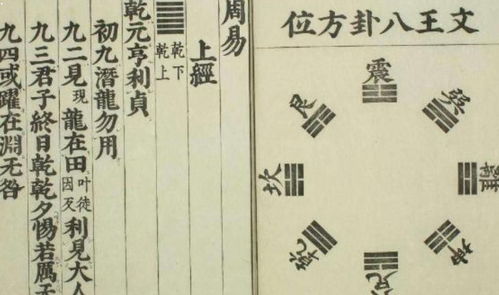 文王八卦方位
震
巽
離
坤
兌
乾
坎
艮
周易
上經
乾下
乾上
乾元亨利貞
初九潛龍勿用
九二見現龍在田叶徒因反利見大人
九三君子終日乾乾夕惕若厲无
九四或躍在淵无咎